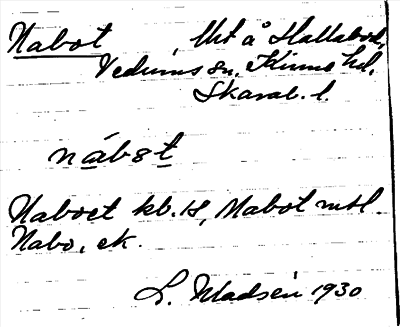 Nabot, Utt å Hallabod,
Vedums sn. Kinne hd.
Skarab. l.
nábst
Naboet kb. 18, Nabot mtl.
Nabo, ek.
L. Madsén 1930